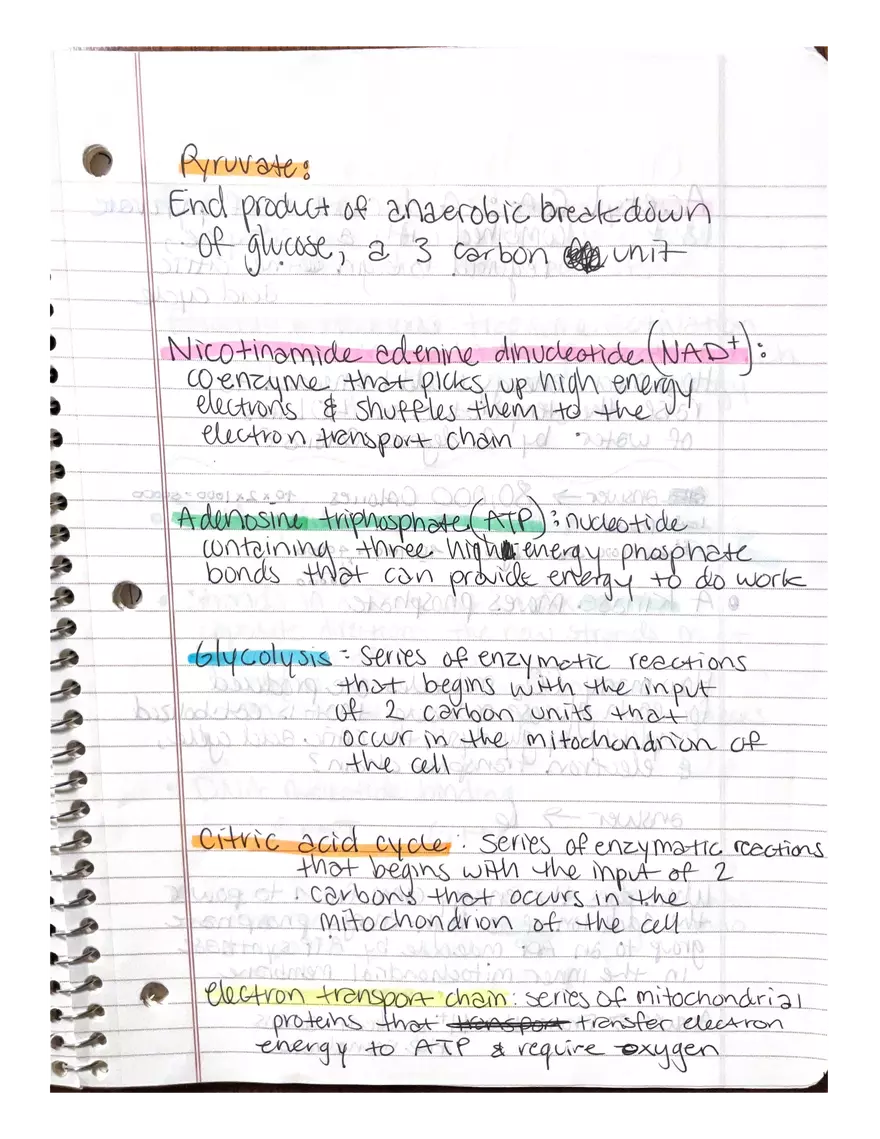 Pyruvate:
End product of anaerobic breakdown
of glucose, a 3 carbon unit
Nicotinamide adenine dinucleotide (NAD+):
coenzyme that picks up high energy
electrons & shuffles them to the
electron transport chain
Adenosine triphosphate (ATP): nucleotide
containing three high energy phosphate
bonds that can provide energy to do work
Glycolysis = series of enzymatic reactions
that begins with the input
of 2 carbon units that
occur in the mitochondrion of
the cell
Citric acid cycle: series of enzymatic reactions
that begins with the input of 2
carbons that occurs in the
mitochondrion of the cell
electron transport chain: series of mitochondrial
proteins that transport transfer electron
energy to ATP & require oxygen